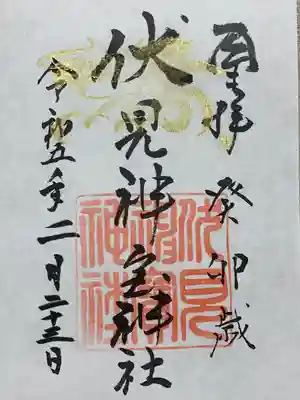 奉拝
癸卯歳
伏見神宝神社
令和五年二月二十三日
伏見
神寶
神社